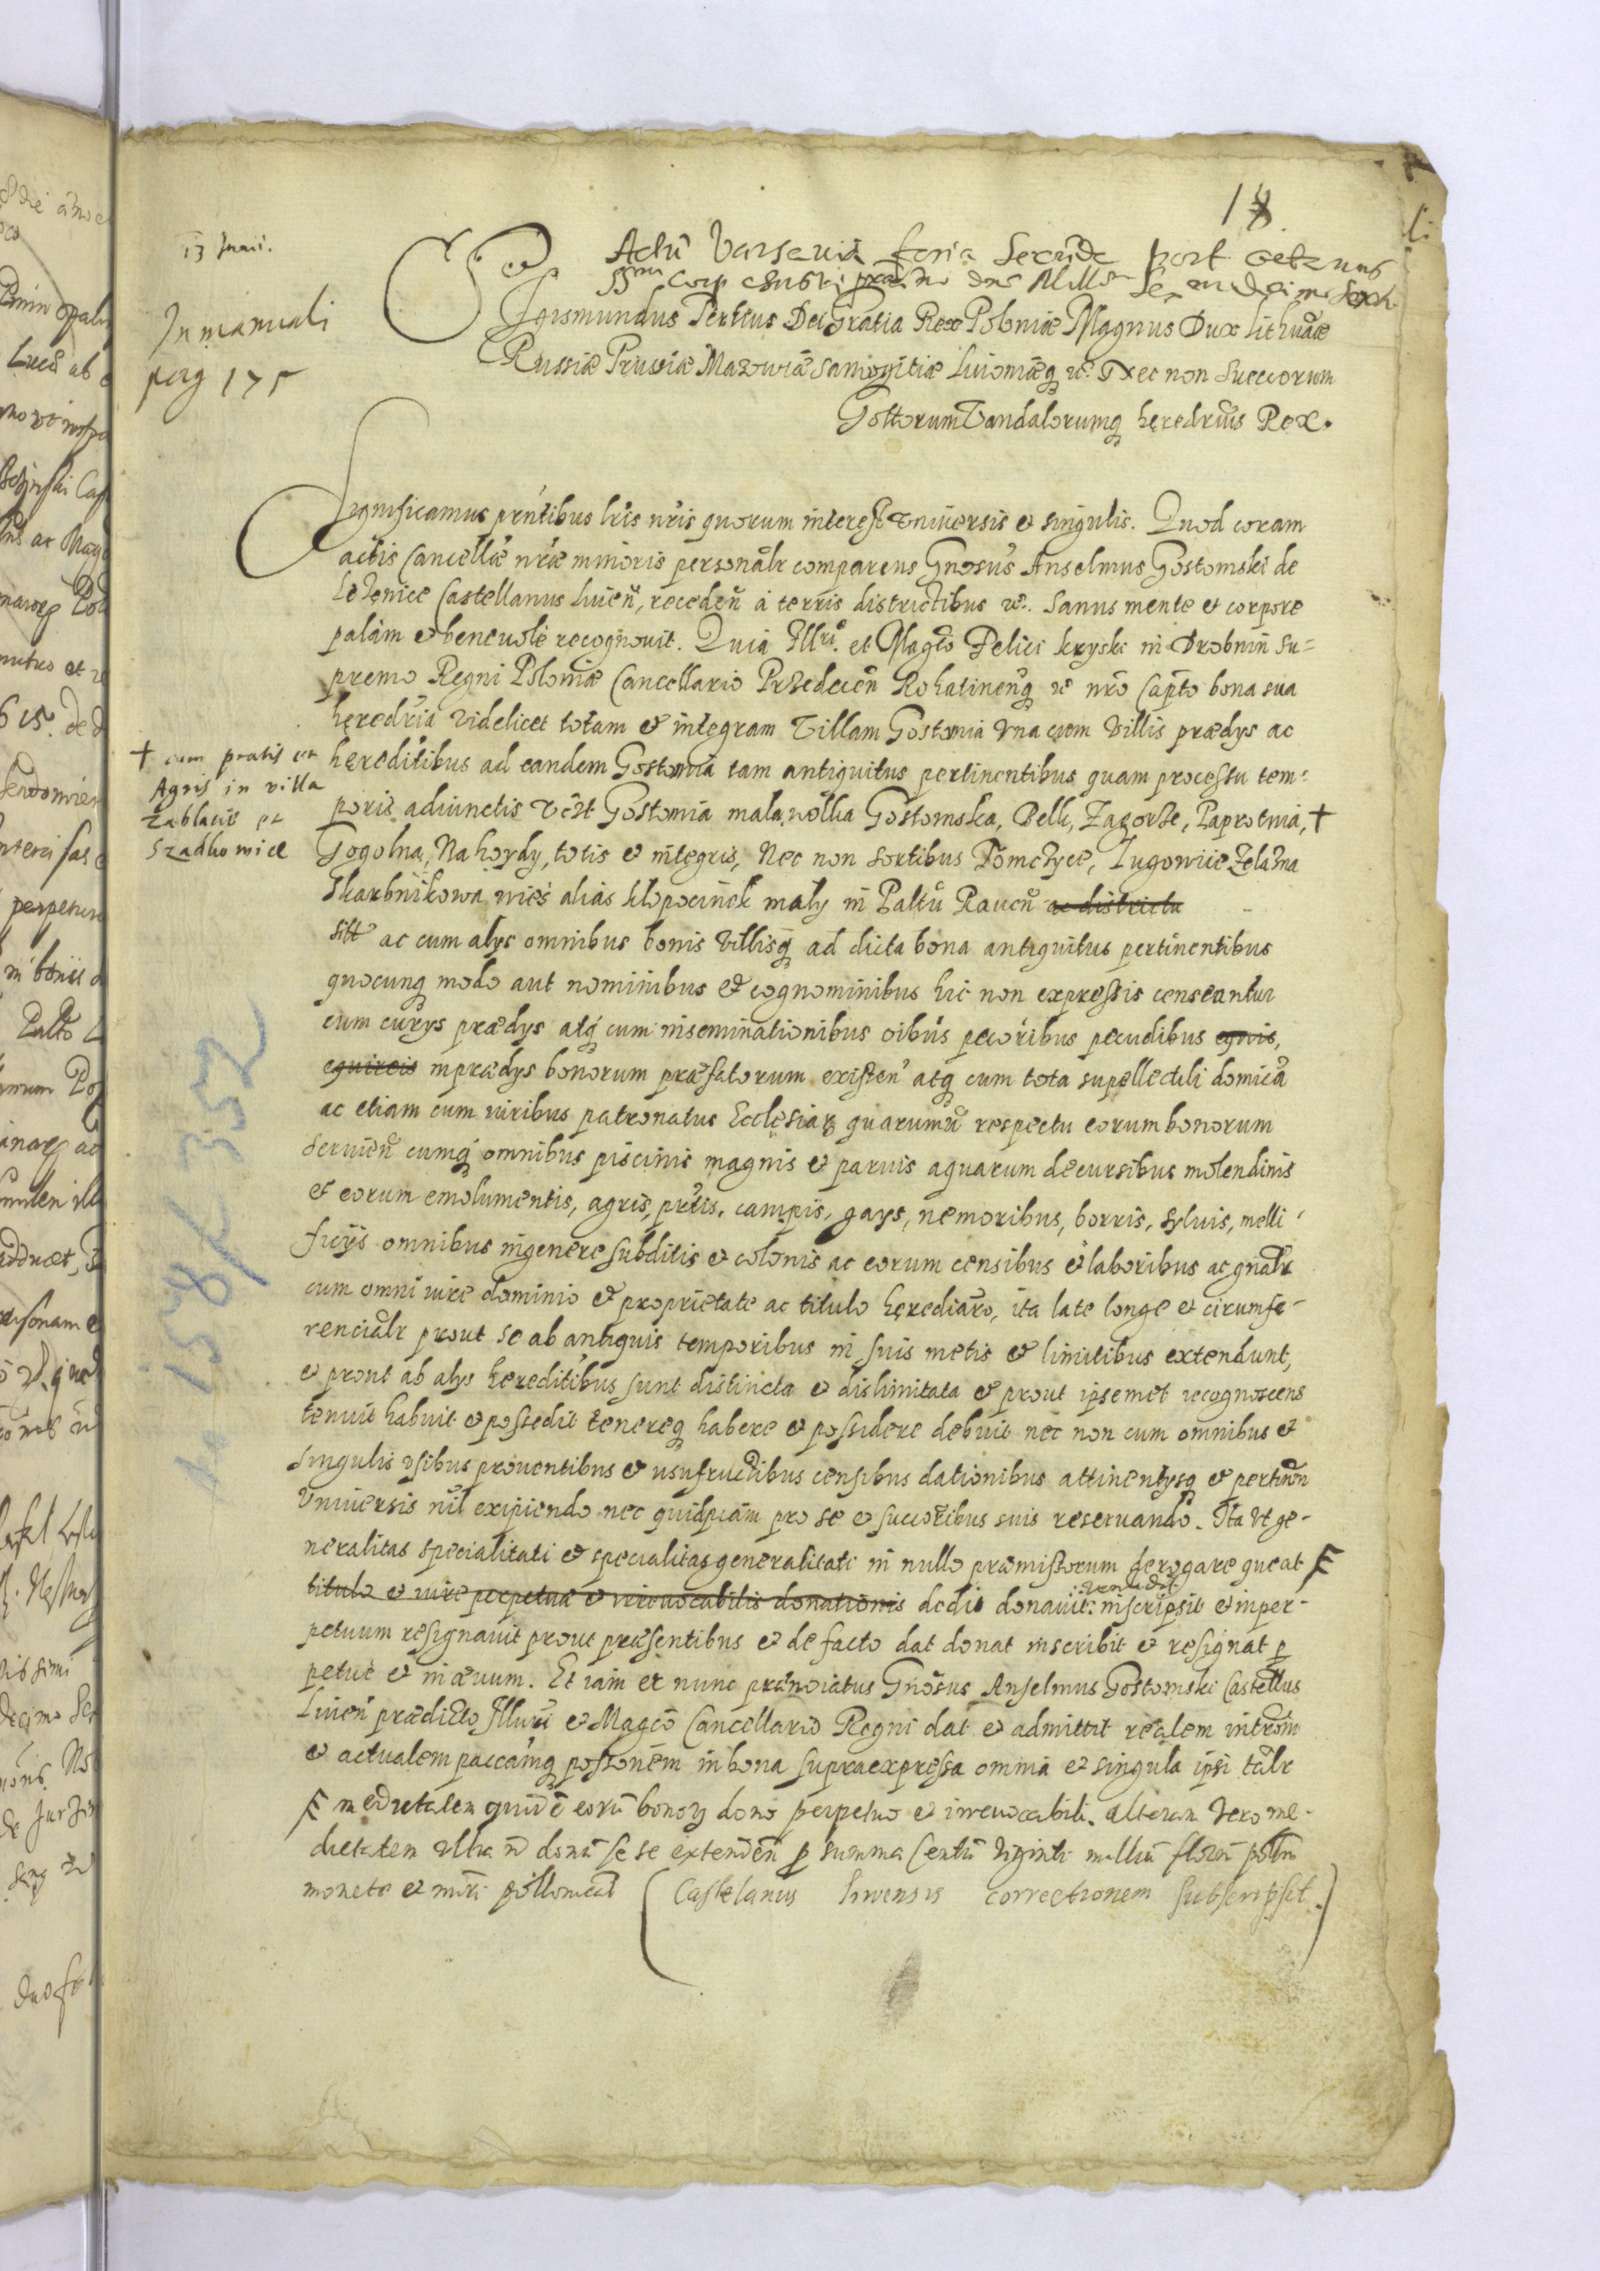 18
13 Junii.
In manuali
pag 175
Actũ Varsauiæ feria Secũda post octauas
SSmi Corp Christi
Sigismundus Tertius Dei Gratia Rex Poloniæ Magnus Dux Lithuãiæ
Russiæ Prussiæ Mazouiæ Samogitiæ Liuoniæq etc. Nec non Suecorum
Gottorum Vandalorumq heredrius Rex.
Significamus prntibus lris nris quorum interest vniuersis et singulis. Quod coram
actis Cancellæ nræ minoris personalr comparens Gnosus Anselmus Gostomski de
Lezenice Castellanus Liuen, receden á terris districtibus etc. Sanus mente et corpore
palàm et beneuolè recognouit. Quia Illri. et Magco Felici Kryski in Drobnin Su=
premo Regni Poloniæ Cancellario Przedecen Rohatinenq etc nro Capto bona sua
heredria videlicet totam et integram Villam Gostomia vna cum villis prædys ac
hereditibus ad eandem Gostomia tam antiquitus pertinentibus quam processu tem=
poris adiunctis vczt Gostomia mala, wolka Gostomska, Belk, Zagorze, Paprotnia, †
† cum pratis et
Agris in villa
Zablacie et
Szadkowice
Gogolna, Nahoydy, totis et integris, Nec non sortibus Tomczyce, Lugowiice Zelazna
Skarbnikowa wieś alias Klopocinek maly in Paltu Rauen ac districtu
sitt ac cum alys omnibus bonis villisq ad dicta bona antiquitus pertinentibus
quocunq modo aut nominibus et cognominibus hic non expressis censeantur
cum curys prædys atq cum inseminationibus oibus pecoribus pecudibus equis,
equireis in prædys bonorum præfatorum existen atq cum tota supellectili domica
ac etiam cum iuribus patronatus Ecclesiar quarumu respectu eorum bonorum
seruien cumq omnibus piscinis magnis et paruis aquarum decursibus molendinis
et eorum emolumentis, agris, prtis, campis, gays, nemoribus, borris, syluis, melli=
ficys omnibus in genere subditis et colonis ac eorum censibus et laboribus ac gnalr
cum omni iure dominio et proprietate ac titulo herediario, ita late longe et circumfe=
rencialr prout se ab antiquis temporibus in suis metis et limitibus extendunt,
et prout ab alys hereditibus sunt distincta et dislimitata et prout ipsemet recognoscens
tenuit habuit et possedit tenereq habere et possidere debuit nec non cum omnibus et
singulis vsibus prouentibus et usufructibus censibus dationibus attinentysq et pertinen
vniuersis nil excipiendo nec quidpiam pro se et succoribus suis reseruando. Ita vt ge=
neralitas specialitati et specialitas generalitati in nullo præmissorum derogare queat
titulo et iure perpetuæ et irreuocabilis donationis dedit donauit vendidit inscripsit et in per=
petuum resignauit prout præsentibus et de facto dat donat inscribit et resignat p
petuè et in æuum. Et iam ex nunc prænoiatus Gnosus Anselmus Gostomski Castellus
Liuen prædicto Illuri et Magco Cancellario Regni dat et admittit realem introm
et actualem paccamq possonem in bona supraexpressa omnia et singula ipsi talr
medietatem quidẽ eorũ bonorz dono perpetuo et irreuocabili. alteram vero me-
dietatem vltra donũ se se extenden p summa Centũ viginti milliũ florũ pollon
moneta et nũri pollonical (Castelanus Livensis correctionem subscripsit.)
Ao 1587 352